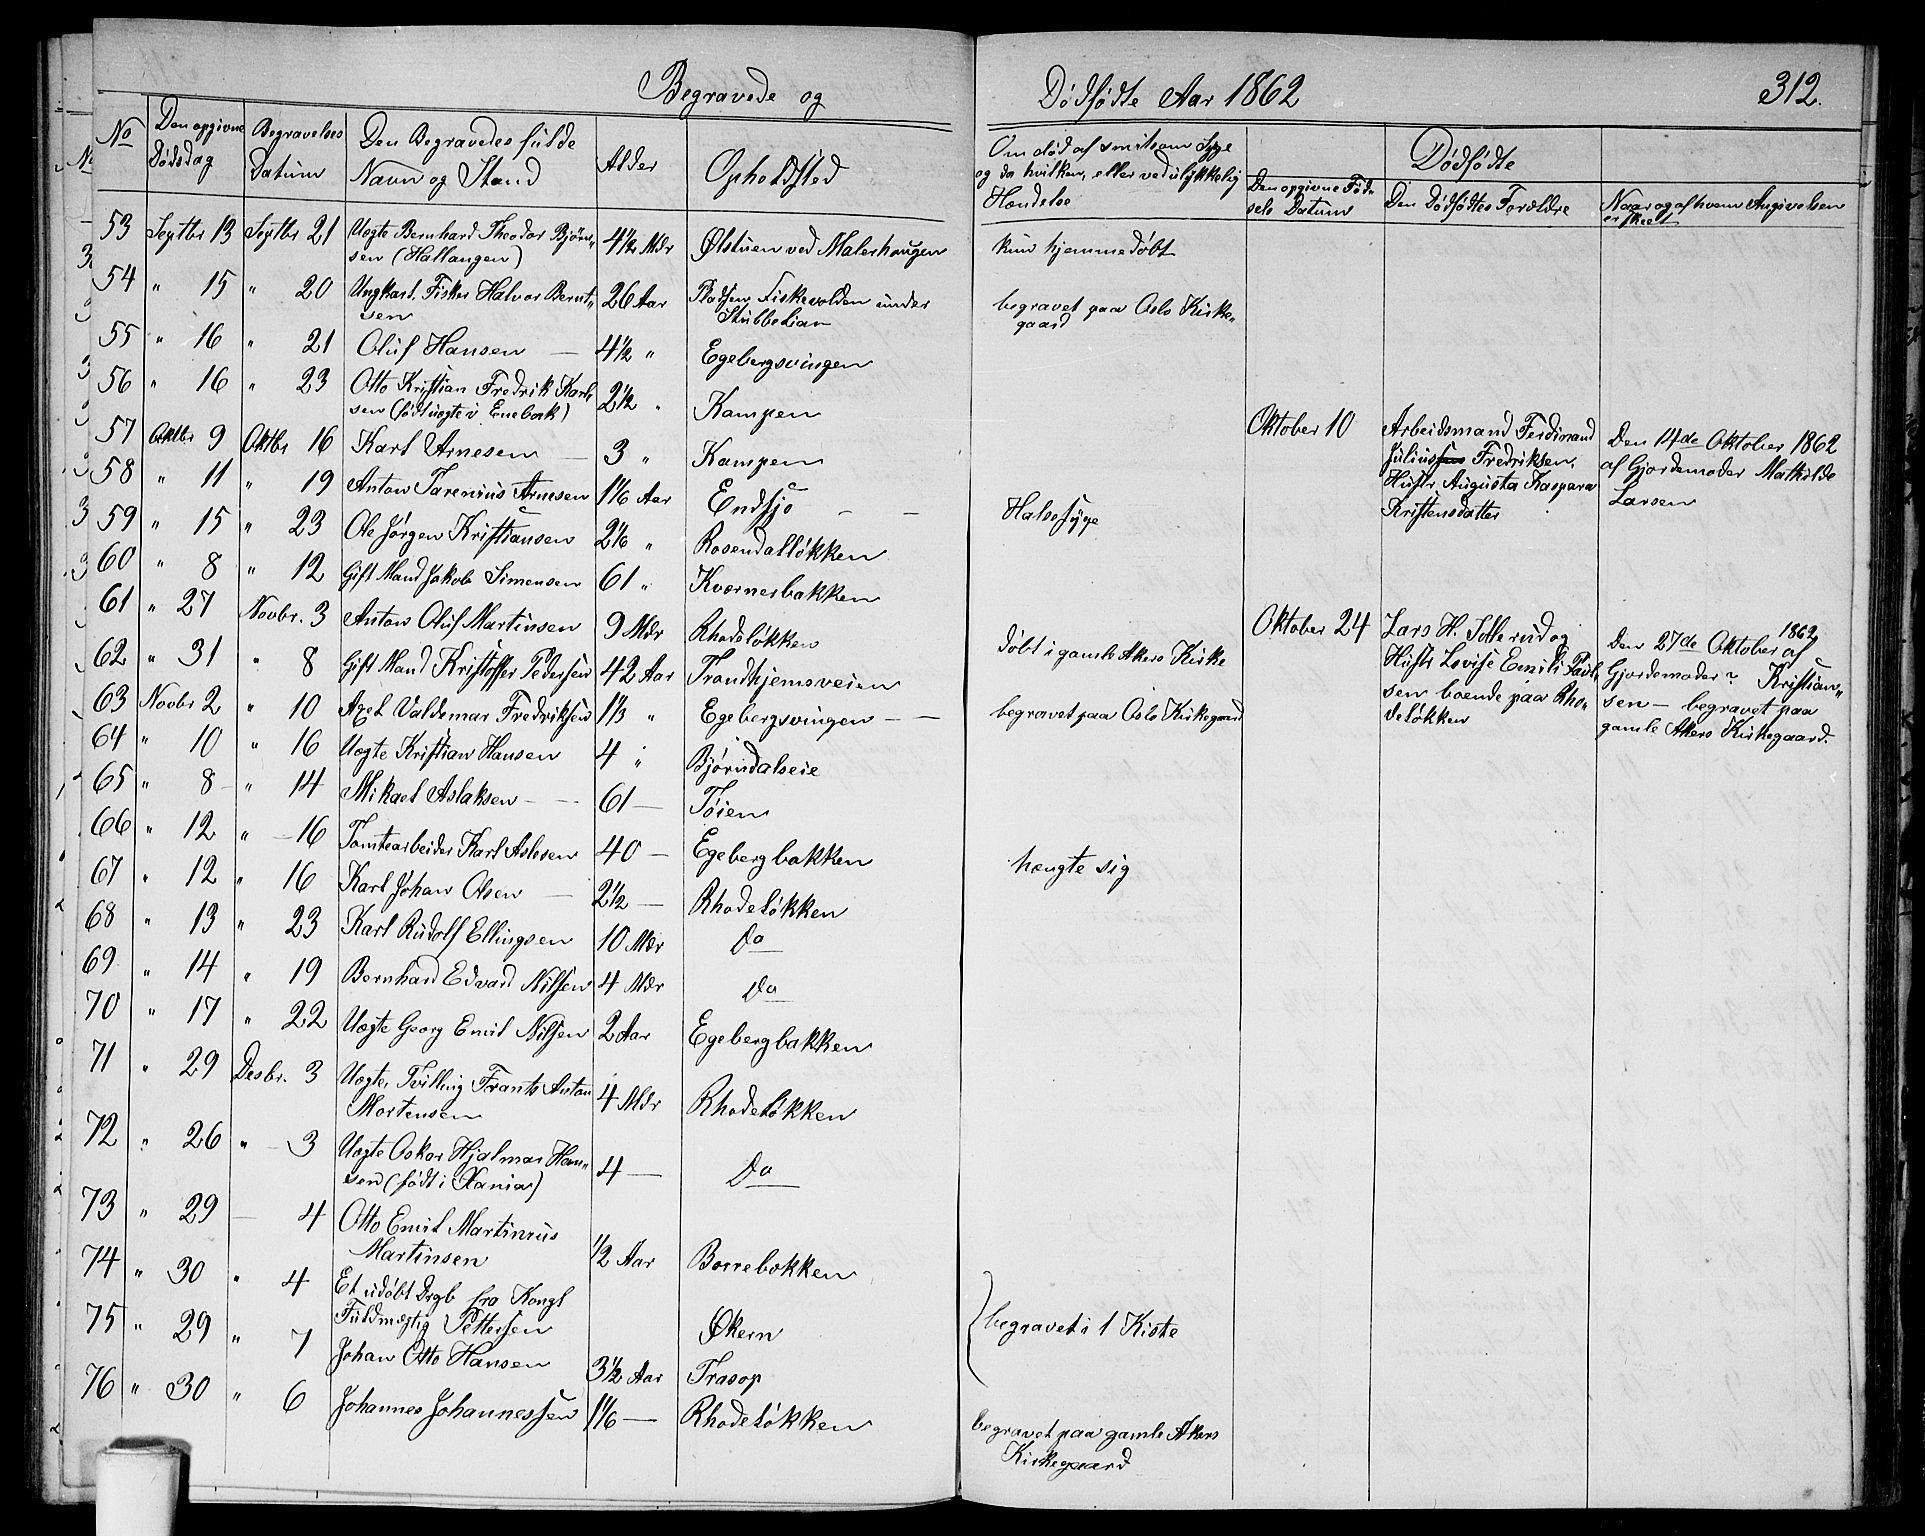 Begravede og Dödfödte Aar 1862 312.
No
Den opgivne Dödsdag
Begravelses Datum
Den Begravedes fulde Navn og Stand
Alder
Opholdsted
Om död af smitsom Syge og da hvilken, eller ved ulykkelig Hændelse
Dödfödte
Den opgivne Födsels Datum
Den Dödfödtes Forældre
Naar og af hvem Angivelsen er skeet
53 Septbr 13 Septbr 21 Uægte Bernhard Theodor Bjönssen (Hallangen) 4 1/2 Mdr Ölstuen ved Malerhaugen kun hjemmedöbt
54 " 15 " 20 Ungkarl, Fisker Halvor Berntsen 26 Aar Pladsen Fiskevolden under Stubbelian begravet paa Oslo Kirkegaard
55 " 16 " 21 Oluf Hansen — 4 1/2 " Egebergsvingen
56 " 16 " 23 Otto Kristian Fredrik Karlsen (född uægte i Enebak) 2 1/2 " Kampen
57 Oktbr 9 Oktbr 16 Karl Arnesen — 3 " Kampen
Oktober 10 Arbeidsmand Ferdinand Julius Fredriksen, Hustr. Augusta Kaspara Kristensdatter
Den 14de Oktober 1862 af Gjordemoder Mathilde Larsen
58 " 11 " 19 Anton Tarenius Arnesen 1 1/6 Aar Endsjo — — Halssyge
59 " 15 " 23 Ole Jörgen Kristiansen 2 1/6 " Rosendallökken
60 " 8 " 12 Gift Mand Jakob Simensen 61 " Kværnerbakken
61 " 27 Novbr. 3 Anton Oluf Martinsen 9 Mdr Rhodelökken döbt i gamle Akers Kirke
Oktober 24 Lars H. Tollerud og Hustr Lovise Emili Paulsen boende paa Rhodelökken
Den 27de Oktober 1862 af Gjordemoder? Kristiansen — begravet paa gamle Akers Kirkegaard.
62 " 31 " 8 Gift Mand Kristoffer Pedersen 42 Aar Trondhjemsveien
63 Novbr 2 " 10 Axel Valdemar Fredriksen 1 1/3 " Egebergsvingen — — begravet paa Oslo Kirkegaard
64 " 10 " 16 Uægte Kristian Hansen 4 " Björndalseie
65 " 8 " 14 Mikael Aslaksen — 61 — Töien
66 " 12 " 16 Tomtearbeider Karl Aslesen 40 — Egebergbakken hængte sig
67 " 12 " 16 Karl Johan Olsen — 2 1/2 — Rhodelökken
68 " 13 " 23 Karl Rudolf Ellingsen 10 Mdr Do
69 " 14 " 19 Bernhard Edvard Nilsen 4 Mdr Do
70 " 17 " 22 Uægte Georg Emil Nilsen 2 Aar Egebergbakken
71 " 29 Desbr. 3 Uægte, Tvilling Frants Anton Mortensen 4 Mdr Rhodelökken
72 " 26 " 3 Uægte Oskar Hjalmar Hansen (född i Xania) 4 — Do
73 " 29 — 4 Otto Emil Martinius Martinsen 1/2 Aar Borrebakken
74 " 30 " 4 Et udöbt Drgb fra Kongl Fuldmægtig Pettersen Ökern
begravet i 1 Kiste
75 " 29 " 7 Johan Otto Hansen 3 1/2 Aar Trasop
76 " 30 " 6 Johannes Johannessen 1 1/6 — Rhodelökken begravet paa gamle Akers Kirkegaard